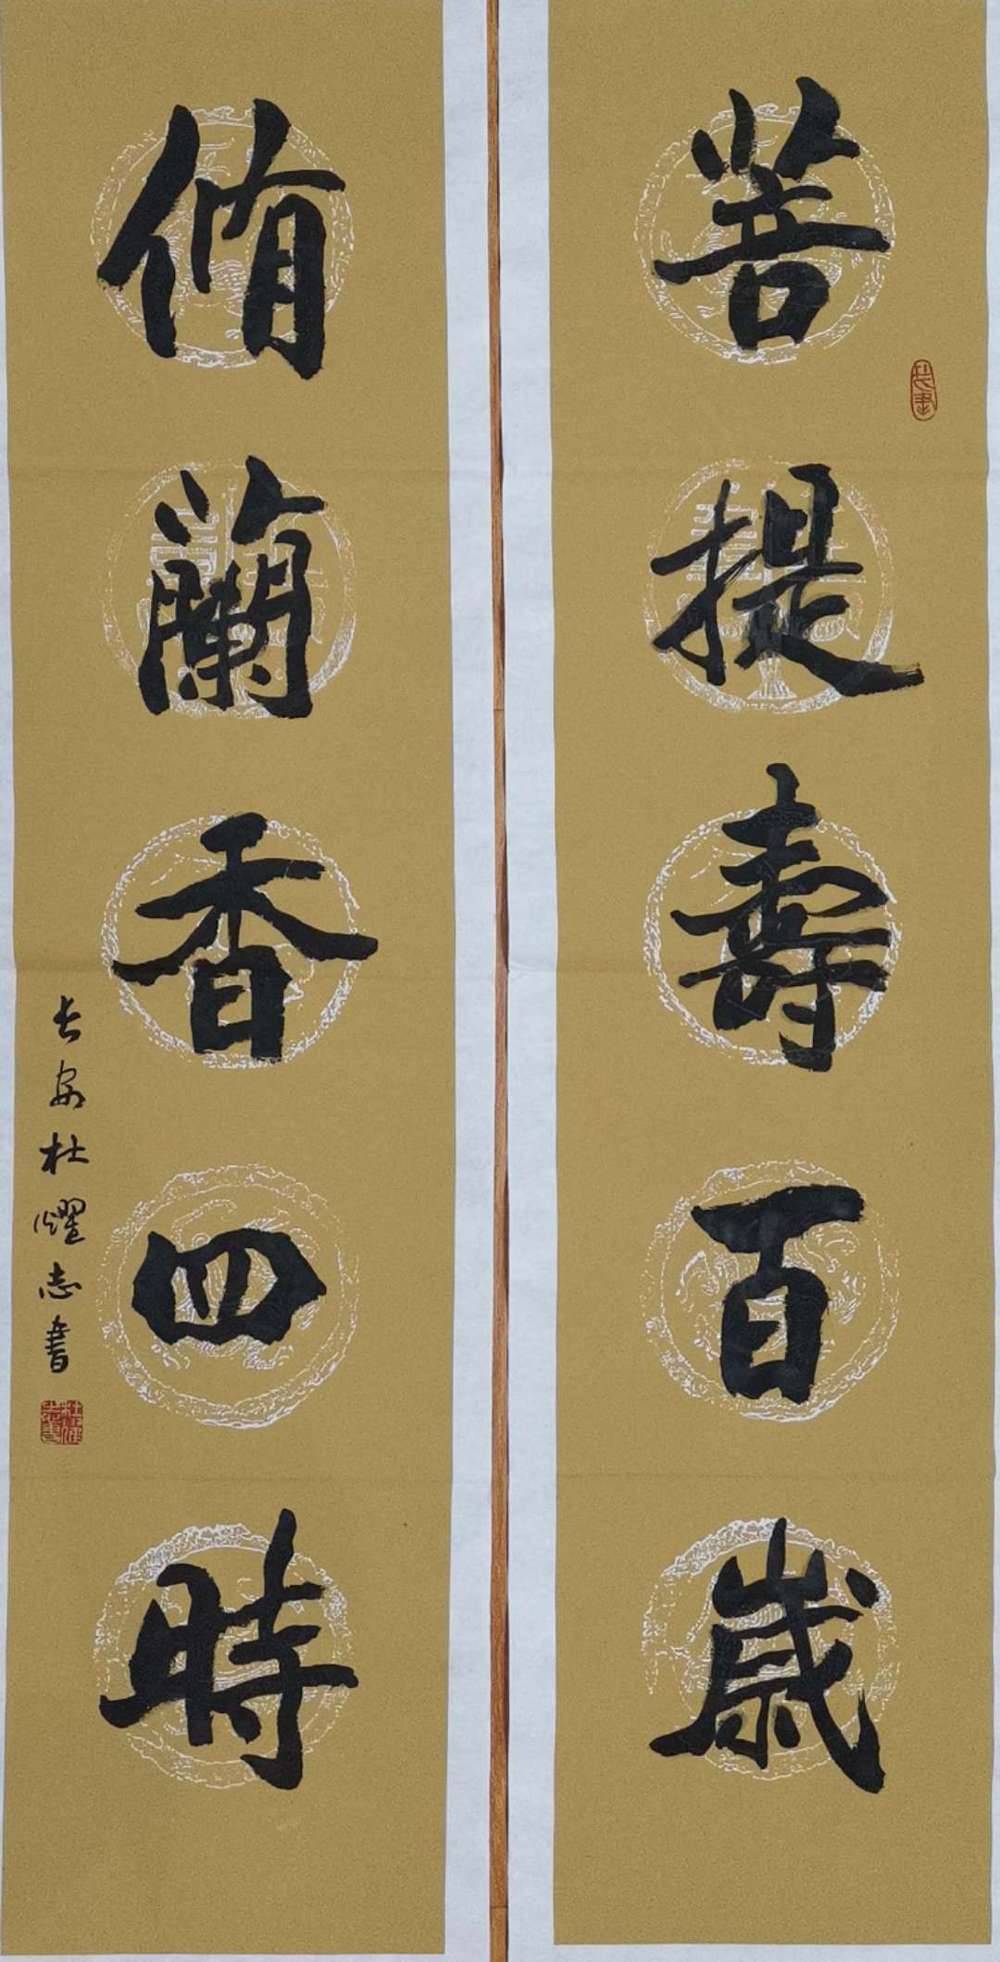 菩提壽百歲
脩蘭香四時
长安杜耀志書